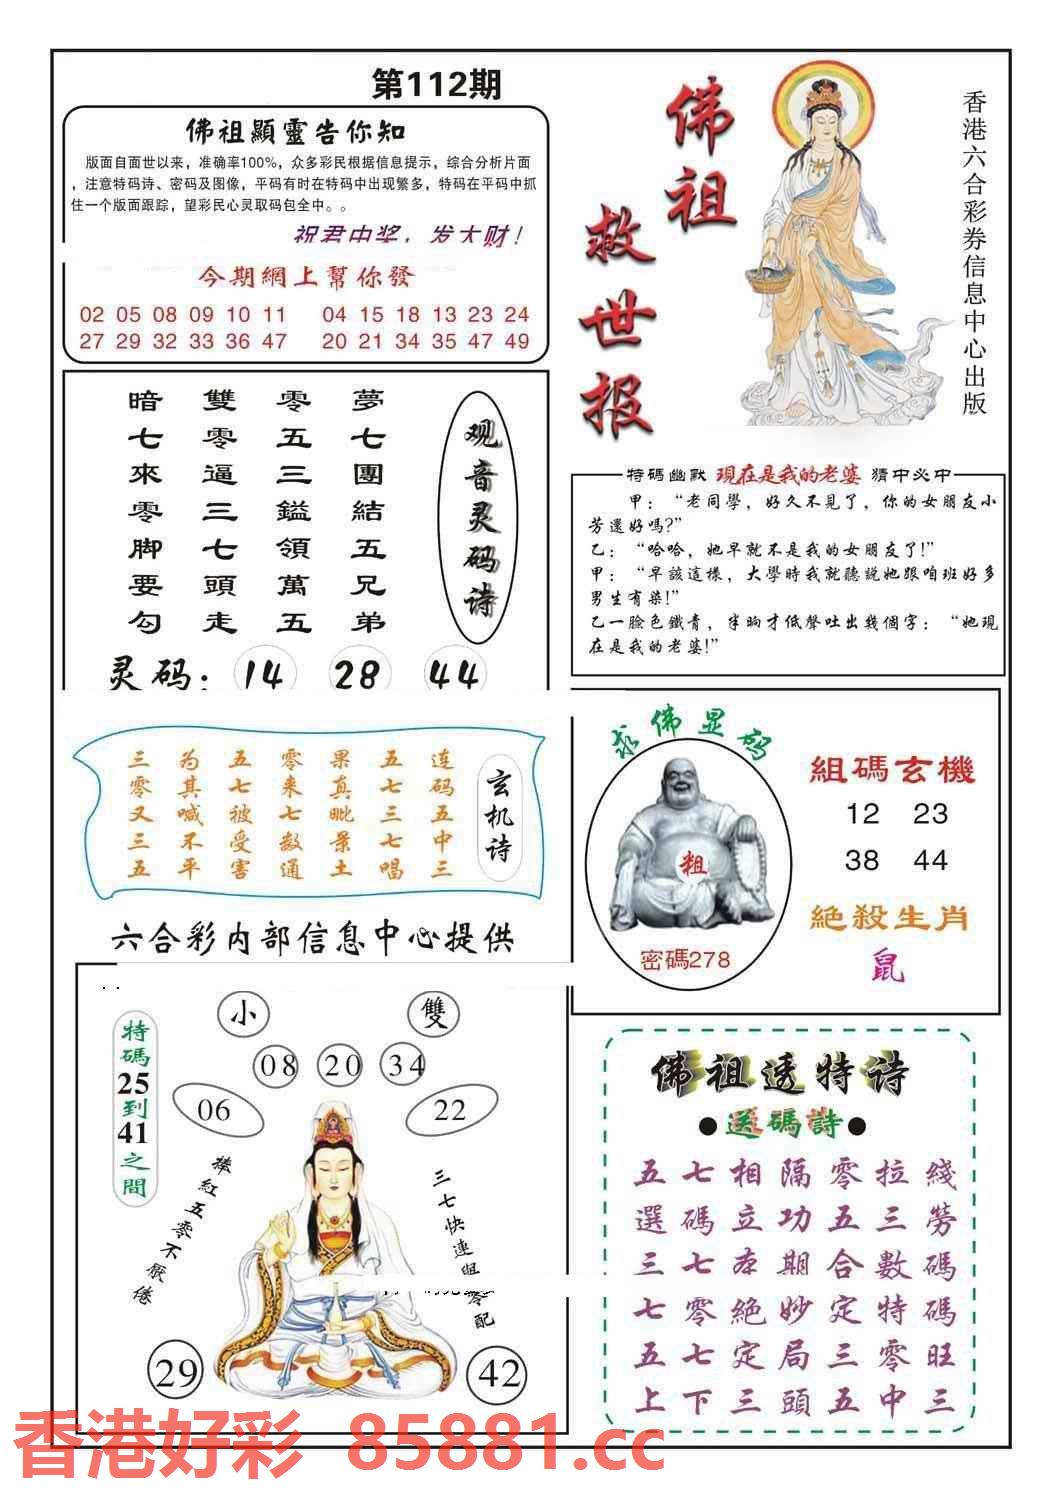 第112期
佛祖顯靈告你知
版面自面世以来，准确率100%，众多彩民根据信息提示，综合分析片面
，注意特码诗、密码及图像，平码有时在特码中出现繁多，特码在平码中抓
住一个版面跟踪，望彩民心灵取码包全中。。
祝君中奖，发大财！
今期網上幫你發
02 05 08 09 10 11 04 15 18 13 23 24
27 29 32 33 36 47 20 21 34 35 47 49
佛祖
救世报
香港六合彩券信息中心出版
观音灵码诗
夢七團結五兄弟
零五三鎰領萬五
雙零逼三七頭走
暗七來零脚要勾
灵码：14 28 44
特碼幽默 現在是我的老婆 猜中必中
甲：“老同學，好久不見了，你的女朋友小
芳還好嗎？”
乙：“哈哈，她早就不是我的女朋友了！”
甲：“早該這樣，大學時我就聽説她跟咱班好多
男生有染！”
乙一臉色鐵青，半晌才低聲吐出幾個字：“她現
在是我的老婆！”
玄机诗
连码五中三
五七三七唱
果真毗景土
零来七数通
五七被受害
为其喊不平
三零又三五
六合彩内部信息中心提供
求佛显码
粗
密碼278
組碼玄機
12 23
38 44
絶殺生肖
鼠
特碼25到41之間
小 雙
08 20 34
06 22
捧紅五零不厭倦
三七快連與零配
29 42
佛祖透特诗
●送碼詩●
五七相隔零拉綫
選碼立功五三勞
三七本期合數碼
七零絶妙定特碼
五七定局三零旺
上下三頭五中三
香港好彩 85881.cc